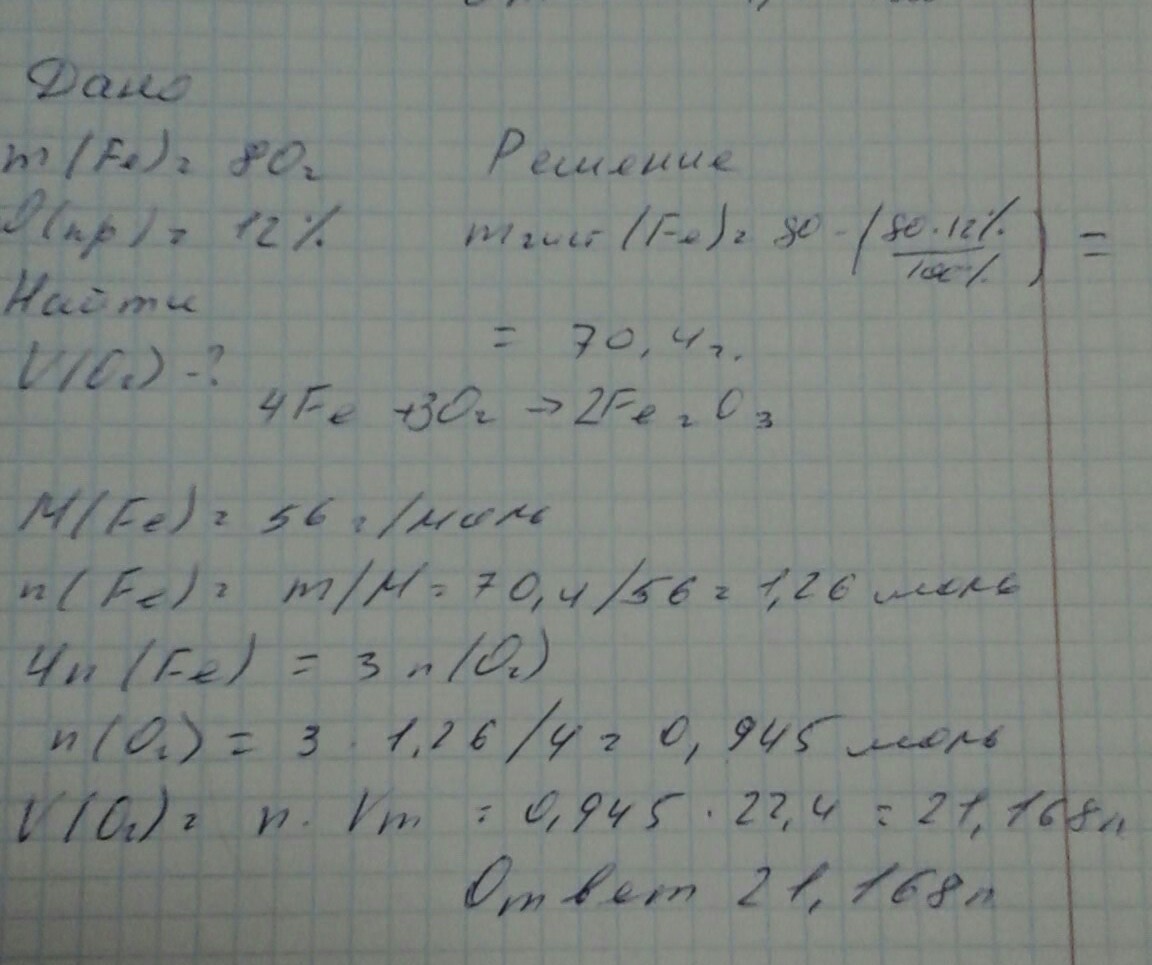 Дано
m(Fe) = 80г Решение
(пр) = 12% mчист(Fe) = 80 - (80·12%/100%) =
Найти = 70,4г.
V(O2) -?
4Fe +3O2 → 2Fe2O3
M(Fe) = 56 г/моль
n(Fe) = m/M = 70,4/56 = 1,26 моль
4n(Fe) = 3n(O2)
n(O2) = 3·1,26/4 = 0,945 моль
V(O2) = n·Vm = 0,945·22,4 = 21,168л
Ответ 21,168л